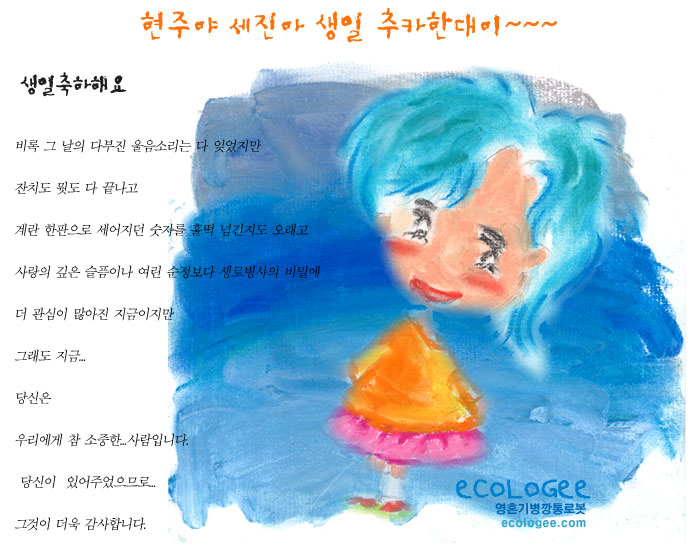 현주야 세진아 생일 추카한대이~~~
생일축하해요
비록 그 날의 다부진 울음소리는 다 잊었지만
잔치도 뭣도 다 끝나고
계란 한판으로 세어지던 숫자를 훌떡 넘긴지도 오래고
사랑의 깊은 슬픔이나 여린 순정보다 생로병사의 비밀에
더 관심이 많아진 지금이지만
그래도 지금...
당신은
우리에게 참 소중한...사람입니다.
당신이 있어주었으므로...
그것이 더욱 감사합니다.
ecologee
영혼기병깡통로봇
ecologee.com